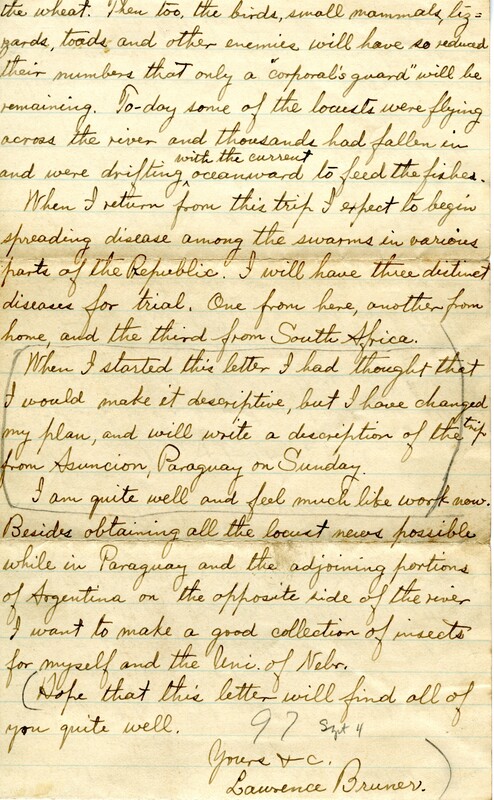 the wheat. Then too, the birds, small mammals, liz=
zards, toads, and other enemies will have so reduced
their numbers that only a "corporal's guard" will be
remaining. To-day some of the locusts were flying
across the river and thousands had fallen in
with the current
and were drifting ^ oceanward to feed the fishes.
When I return from this trip I expect to begin
spreading disease among the swarms in various
parts of the Republic. I will have three distinct
diseases for trial. One from here, another from
home, and the third from South Africa.
(When I started this letter I had thought that
I would make it descriptive, but I have changed
my plan, and will write a description of the trip
from Asuncion, Paraguay on Sunday.
I am quite well and feel much like work now.)
Besides obtaining all the locust news possible
while in Paraguay and the adjoining portions
of Argentina on the opposite side of the river
I want to make a good collection of insects
for myself and the Uni. of Nebr.
(Hope that this letter will find all of
you quite well.
97 Sept 4
Yours & c.
Lawrence Bruner.)